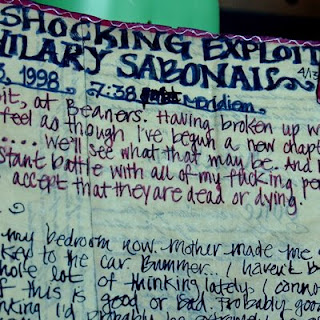 SHOCKING EXPLOIT
HILARY SABONAIS
4/13
3, 1998 7:38 Meridiem
it, at Beaners. Having broken up w
feel as though I've begun a new chapt
.... we'll see what that may be. And I
stant battle with all of my fucking pe
accept that they are dead or dying.
my bedroom now. Mother made me
key to the car. Bummer.. I haven't b
whole lot of thinking lately. I canno
if this is good or bad. Probably good
nking I'd probably be extremely